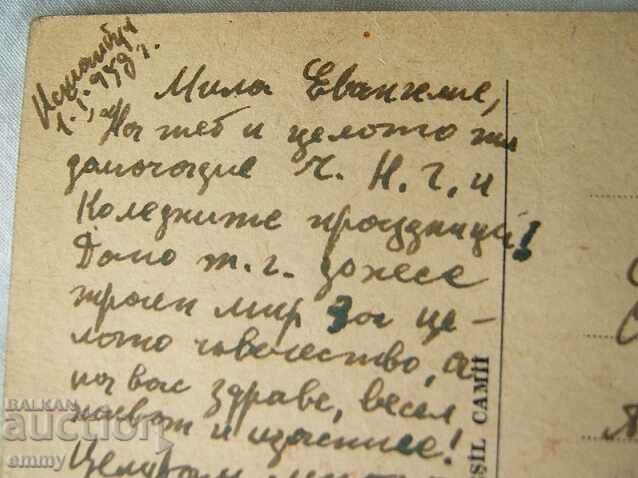 Истанбул
1.I.1948 г.
Мила Евангелие,
На теб и целото ти
домочадие Ч. Н. Г. и
Коледните празници!
Дано т. г. донесе
траен мир за це-
лото човечество, а
на вас здраве, весел
живот и щастие!
Целувки
ŞİL CAMİİ
BALKAN
auction
emmy